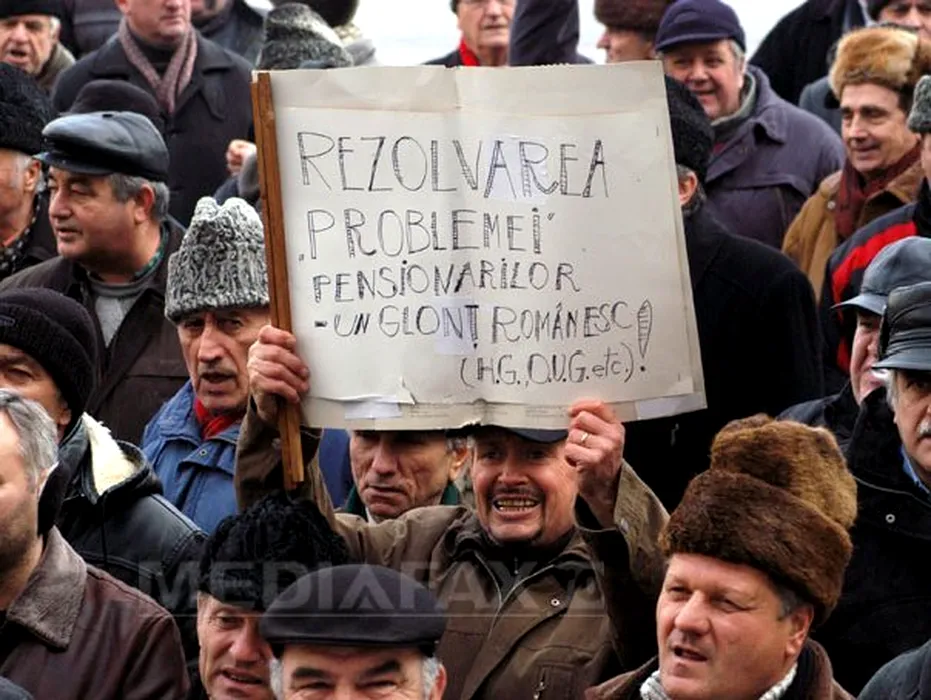 REZOLVAREA
„PROBLEMEI"
PENSIONARILOR
-UN GLONȚ ROMÂNESC!
(H.G., O.U.G. etc.)
MEDIAFAX